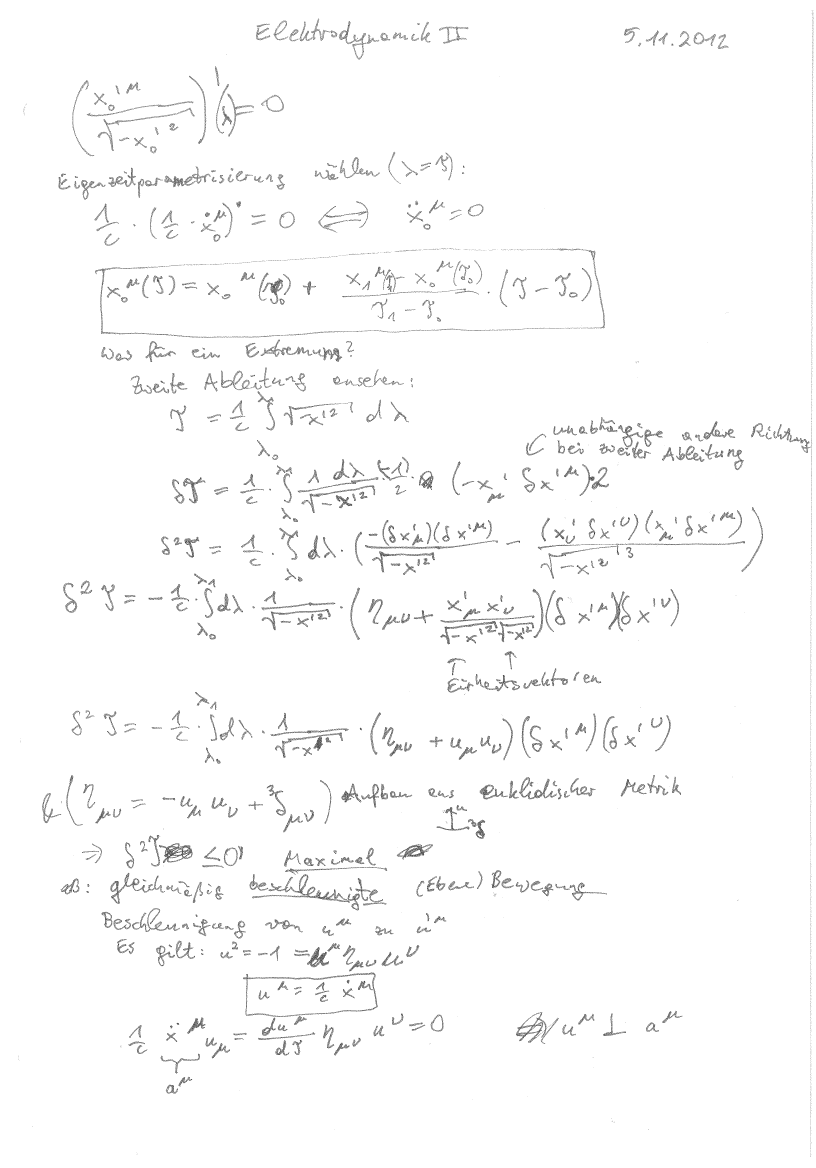 Elektrodynamik II 5.11.2012
(x₀'^μ / √(-x₀'²))'(λ) = 0
Eigenzeitparametrisierung wählen (λ=τ):
1/c · (1/c · ẋ₀^μ)˙ = 0 ⟺ ẍ₀^μ = 0
x₀^μ(τ) = x₀^μ(τ₀) + (x₁^μ(τ₁) - x₀^μ(τ₀))/(τ₁ - τ₀) · (τ - τ₀)
Was für ein Extremum?
Zweite Ableitung ansehen:
τ = 1/c ∫_{λ₀}^{λ₁} √(-x'²) dλ
unabhängige andere Richtung
bei zweiter Ableitung
δτ = 1/c · ∫_{λ₀}^{λ₁} (1 dλ)/√(-x'²) · (-1)/2 · (-x'_μ δx'^μ)·2
δ²τ = 1/c · ∫_{λ₀}^{λ₁} dλ · (-(δx'_μ)(δx'^μ)/√(-x'²) - (x'_ν δx'^ν)(x'_μ δx'^μ)/√(-x'²)³)
δ²τ = -1/c · ∫_{λ₀}^{λ₁} dλ · 1/√(-x'²) · (η_μν + (x'_μ x'_ν)/(√(-x'²) √(-x'²)))(δx'^μ)(δx'^ν)
↑ ↑
Einheitsvektoren
δ²τ = -1/c · ∫_{λ₀}^{λ₁} dλ · 1/√(-x'²) · (η_μν + u_μ u_ν)(δx'^μ)(δx'^ν)
& (η_μν = -u_μ u_ν + ³δ_μν) Aufbau aus euklidischer Metrik
u ³δ
⇒ δ²τ ≤ 0 Maximal
zB: gleichmäßig beschleunigte (Ebene) Bewegung
Beschleunigung von u^μ zu u'^μ
Es gilt: u² = -1 = u^μ η_μν u^ν
u^μ = 1/c ẋ^μ
1/c ẍ^μ u_μ = du^μ/dτ η_μν u^ν = 0 / u^μ ⊥ a^μ
a^μ